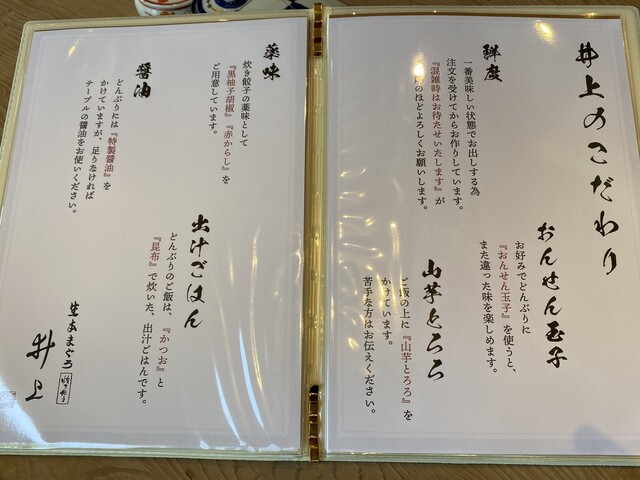 井上のこだわり
鮮度
一番美味しい状態でお出しする為
注文を受けてからお作りしています。
『混雑時はお待たせいたします』が
のほどよろしくお願いします。
おんせん玉子
お好みでどんぶりに
『おんせん玉子』を使うと、
また違った味を楽しめます。
山芋とろろ
ご飯の上に『山芋とろろ』を
かけています。
苦手な方はお伝えください。
薬味
炊き餃子の薬味として
『黒柚子胡椒』『赤からし』を
ご用意しています。
醤油
どんぶりには『特製醤油』を
かけていますが、足りなければ
テーブルの醤油をお使いください。
出汁ごはん
どんぶりのご飯は、『かつお』と
『昆布』で炊いた、出汁ごはんです。
生本まぐろ
井上